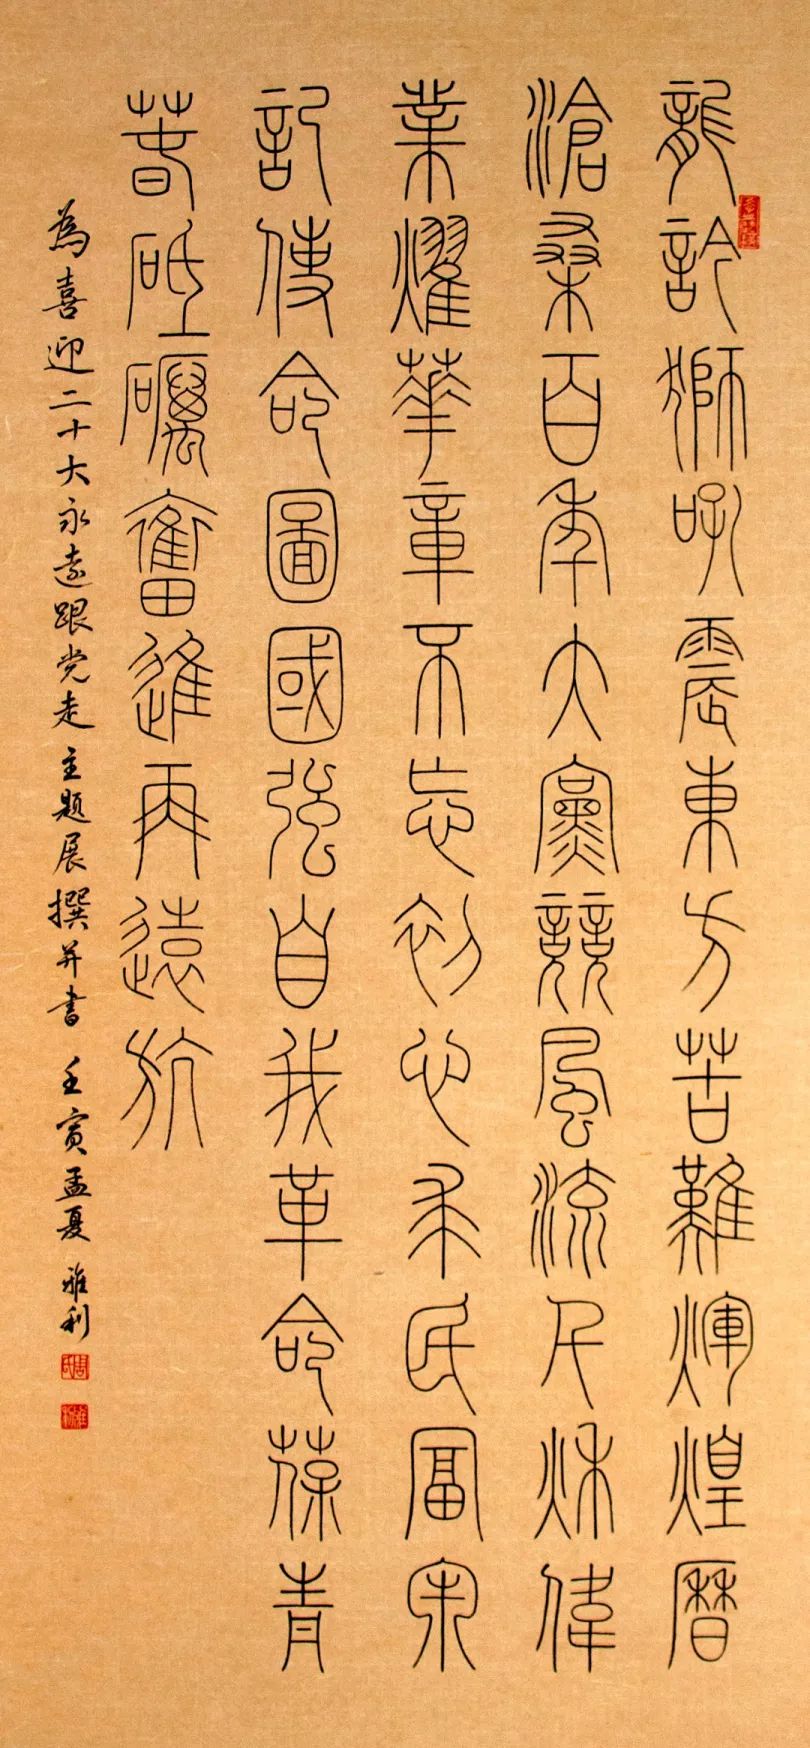 龍訡獅吼震東方苦難煇煌曆
滄桑百年大黨競風流千秌偉
業耀華章不忘初心求民富牢
記使命圖國強自我革命葆青
春砥礪奮進再遠航
為喜迎二十大永遠跟党走 主題展撰并書 壬寅孟夏 雅利